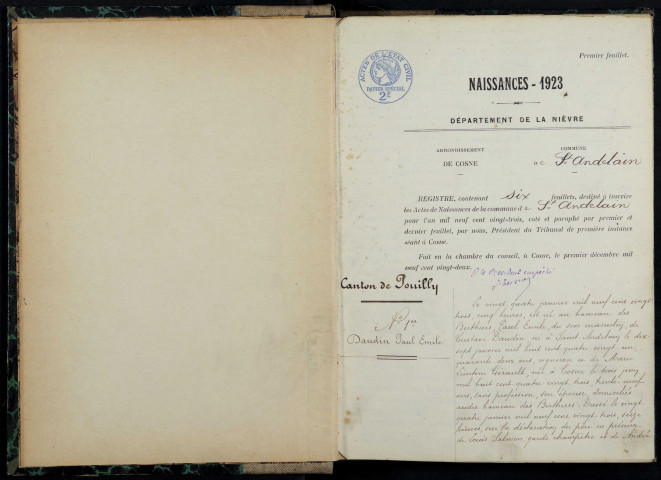 Premier feuillet.
ACTES DE L'ÉTAT CIVIL
PAPIER SPÉCIAL
2E
NAISSANCES - 1923
DÉPARTEMENT DE LA NIÈVRE
ARRONDISSEMENT
DE COSNE
COMMUNE
St Andelain
REGISTRE, contenant six feuillets, destiné à inscrire
les Actes de Naissances de la commune de St Andelain
pour l'an mil neuf cent vingt-trois, coté et paraphé par premier et
dernier feuillet, par nous, Président du Tribunal de première instance
séant à Cosne.
Fait en la chambre du conseil, à Cosne, le premier décembre mil
neuf cent vingt-deux.
Canton de Pouilly
No 1er
Daudin Paul Emile
Le vingt quatre janvier mil neuf cent vingt
trois, cinq heures, est né au hameau des
Berthiers, Paul Emile, du sexe masculin, de
Gustave Daudin, né à Saint Andelain le dix
sept janvier mil huit cent quatre vingt un,
quarante deux ans, vigneron et de Marie
Girault, née à Cosne le trois
mil huit cent quatre vingt trois, trente neuf
ans, sans profession, son épouse, domiciliés
audit hameau des Berthiers. Dressé le vingt
quatre janvier mil neuf cent vingt trois, seize
heures, sur la déclaration du père en présence
de Louis garde champêtre et de André